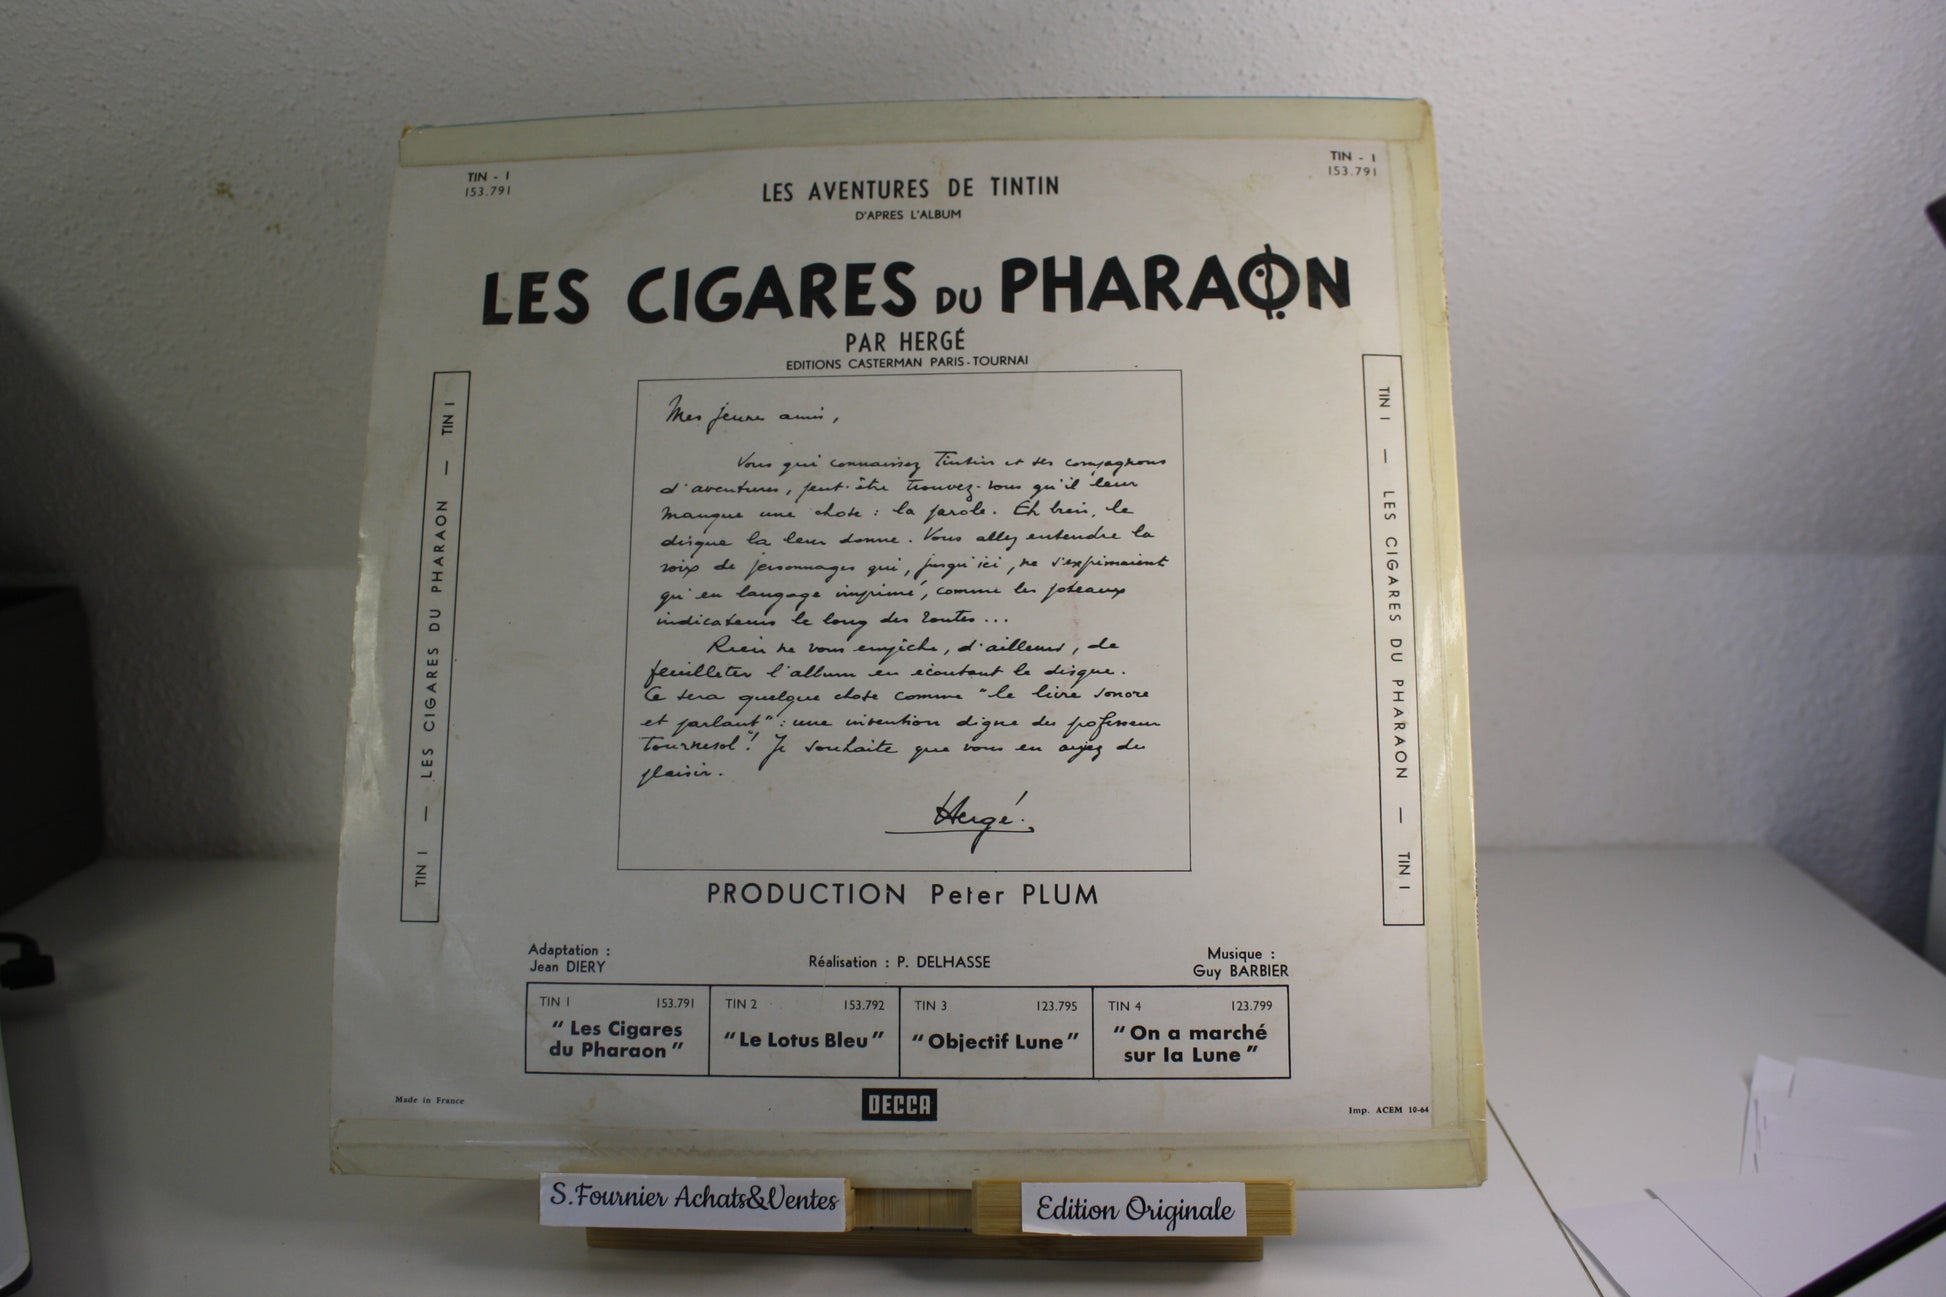 TIN - I
153.791
TIN - I
153.791
LES AVENTURES DE TINTIN
D'APRES L'ALBUM
LES CIGARES DU PHARAON
PAR HERGÉ
EDITIONS CASTERMAN PARIS-TOURNAI
TIN I — LES CIGARES DU PHARAON — TIN I
Mes jeunes amis,
Vous qui connaissez Tintin et ses compagnons
d'aventures, peut-être trouvez-vous qu'il leur
manque une chose : la parole. Eh bien, le
disque la leur donne. Vous allez entendre la
voix de personnages qui, jusqu'ici, ne s'exprimaient
qu'en langage imprimé, comme les poteaux
indicateurs le long des routes...
Rien ne vous empêche, d'ailleurs, de
feuilleter l'album en écoutant le disque.
Ce sera quelque chose comme "le livre sonore
et parlant" : une invention digne du professeur
Tournesol ! Je souhaite que vous en ayez du
plaisir.
Hergé.
TIN I — LES CIGARES DU PHARAON — TIN I
PRODUCTION Peter PLUM
Adaptation :
Jean DIERY
Réalisation : P. DELHASSE
Musique :
Guy BARBIER
TIN I 153.791
"Les Cigares
du Pharaon"
TIN 2 153.792
"Le Lotus Bleu"
TIN 3 123.795
"Objectif Lune"
TIN 4 123.799
"On a marché
sur la Lune"
Made in France
DECCA
Imp. ACEM 10-64
S.Fournier Achats&Ventes
Edition Originale